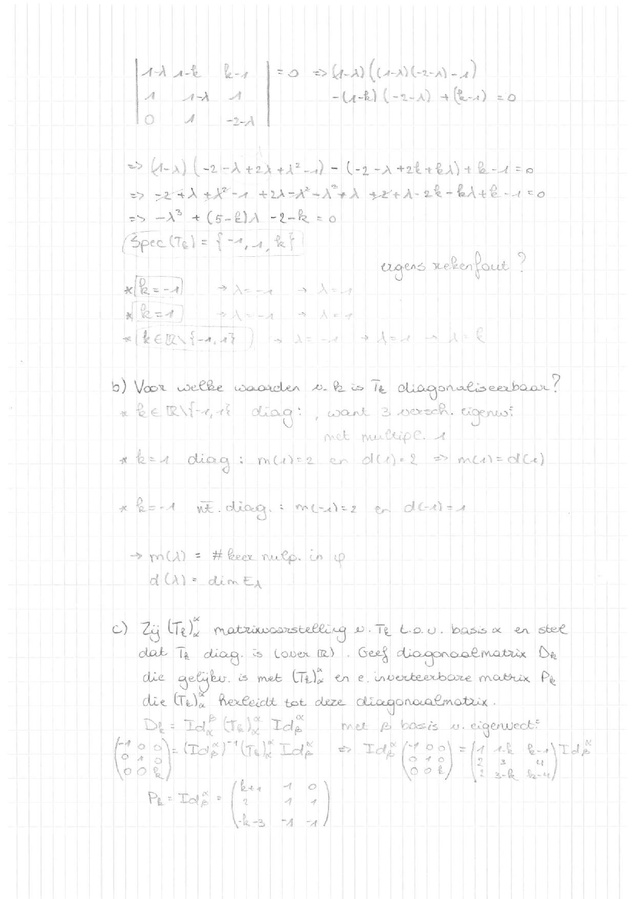 | 1-λ 1-k k-1 | = 0 => (1-λ)((1-λ)(-2-λ) - 1)
| 1 1-λ 1 | - (1-k)(-2-λ) + (k-1) = 0
| 0 1 -2-λ |
=> (1-λ)(-2-λ+2λ+λ²-1) - (-2-λ+2k+kλ) + k-1 = 0
=> -λ³ + (5-k)λ -2-k = 0
Spec(Tk) = {-1, 1, k}
ergens rekenfout?
* k = -1 → λ = -1 → λ = 1
* k = 1 → λ = -1 → λ = 1
* k ∈ ℝ\{-1, 1} → λ = -1 → λ = 1 → λ = k
b) Voor welke waarden v. k is Tk diagonaliseerbaar?
* k ∈ ℝ\{-1, 1} diag: , want 3 versch. eigenw:
met multipl. 1
* k=1 diag : m(1)=2 en d(1)=2 => m(1) = d(1)
* k=-1 nt. diag. : m(-1)=2 en d(-1)=1
→ m(λ) = # keer nulp. in φ
d(λ) = dim Eλ
c) Zij (Tk)αα matrixvoorstelling v. Tk t.o.v. basis α en stel
dat Tk diag. is (over ℝ). Geef diagonaalmatrix Dk
die gelijkv. is met (Tk)αα en e. inverteerbare matrix Pk
die (Tk)αα herleidt tot deze diagonaalmatrix.
Dk = Idαβ (Tk)αα Idβα met β basis v. eigenvect:
(-1 0 0) = (Idβα)-1 (Tk)αα Idβα <=> Idβα (-1 0 0) = (1 1-k k-1) Idβα
(0 1 0) (0 1 0) (2 3 4)
(0 0 k) (0 0 k) (2 3-k k-4)
Pk = Idβα = (k+1 1 0)
(2 1 1)
(-k-3 -1 -1)